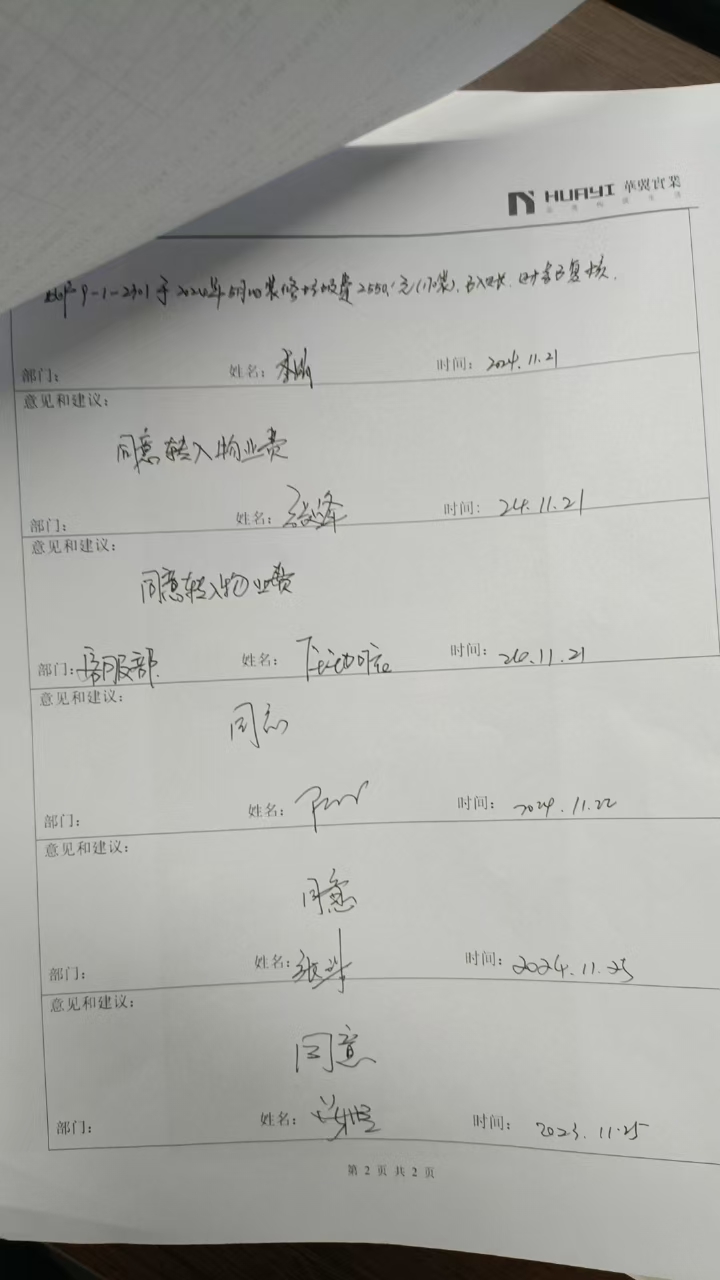 HUAYI 華翼實業
9-1-2301于2024年5月 装修垃圾费2550.元 已入账.财务已复核.
部门: 姓名: 时间: 2024.11.21
意见和建议:
同意转入物业费
部门: 姓名: 时间: 24.11.21
意见和建议:
同意转入物业费
部门: 客服部 姓名: 时间: 24.11.21
意见和建议:
同意
部门: 姓名: 时间: 2024.11.22
意见和建议:
同意
部门: 姓名: 时间: 2024.11.25
意见和建议:
同意
部门: 姓名: 时间: 2023.11.25
第 2 页 共 2 页